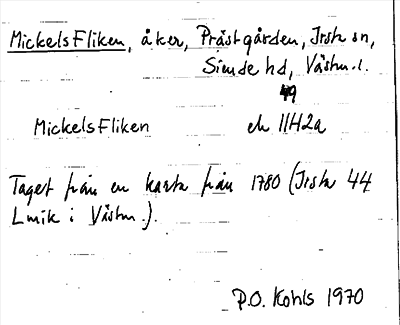 MickelsFliken, åker, Prästgården, Irsta sn,
Siende hd, Västm.l.
49
MickelsFliken ek 11H2a
Taget från en karta från 1780 (Irsta 44
Lmk i Västm.).
P.O. Kohls 1970